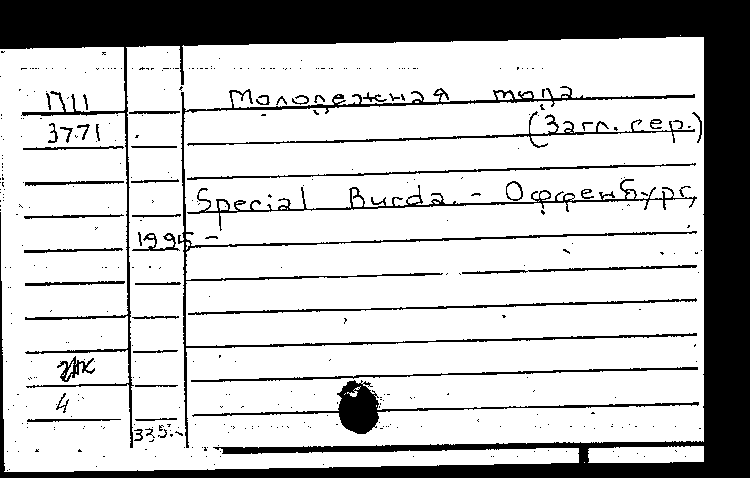 П11 Молодежная мода
3771 (Загл. сер.)
Special Burda. - Оффенбург,
1995 -
4
335.-